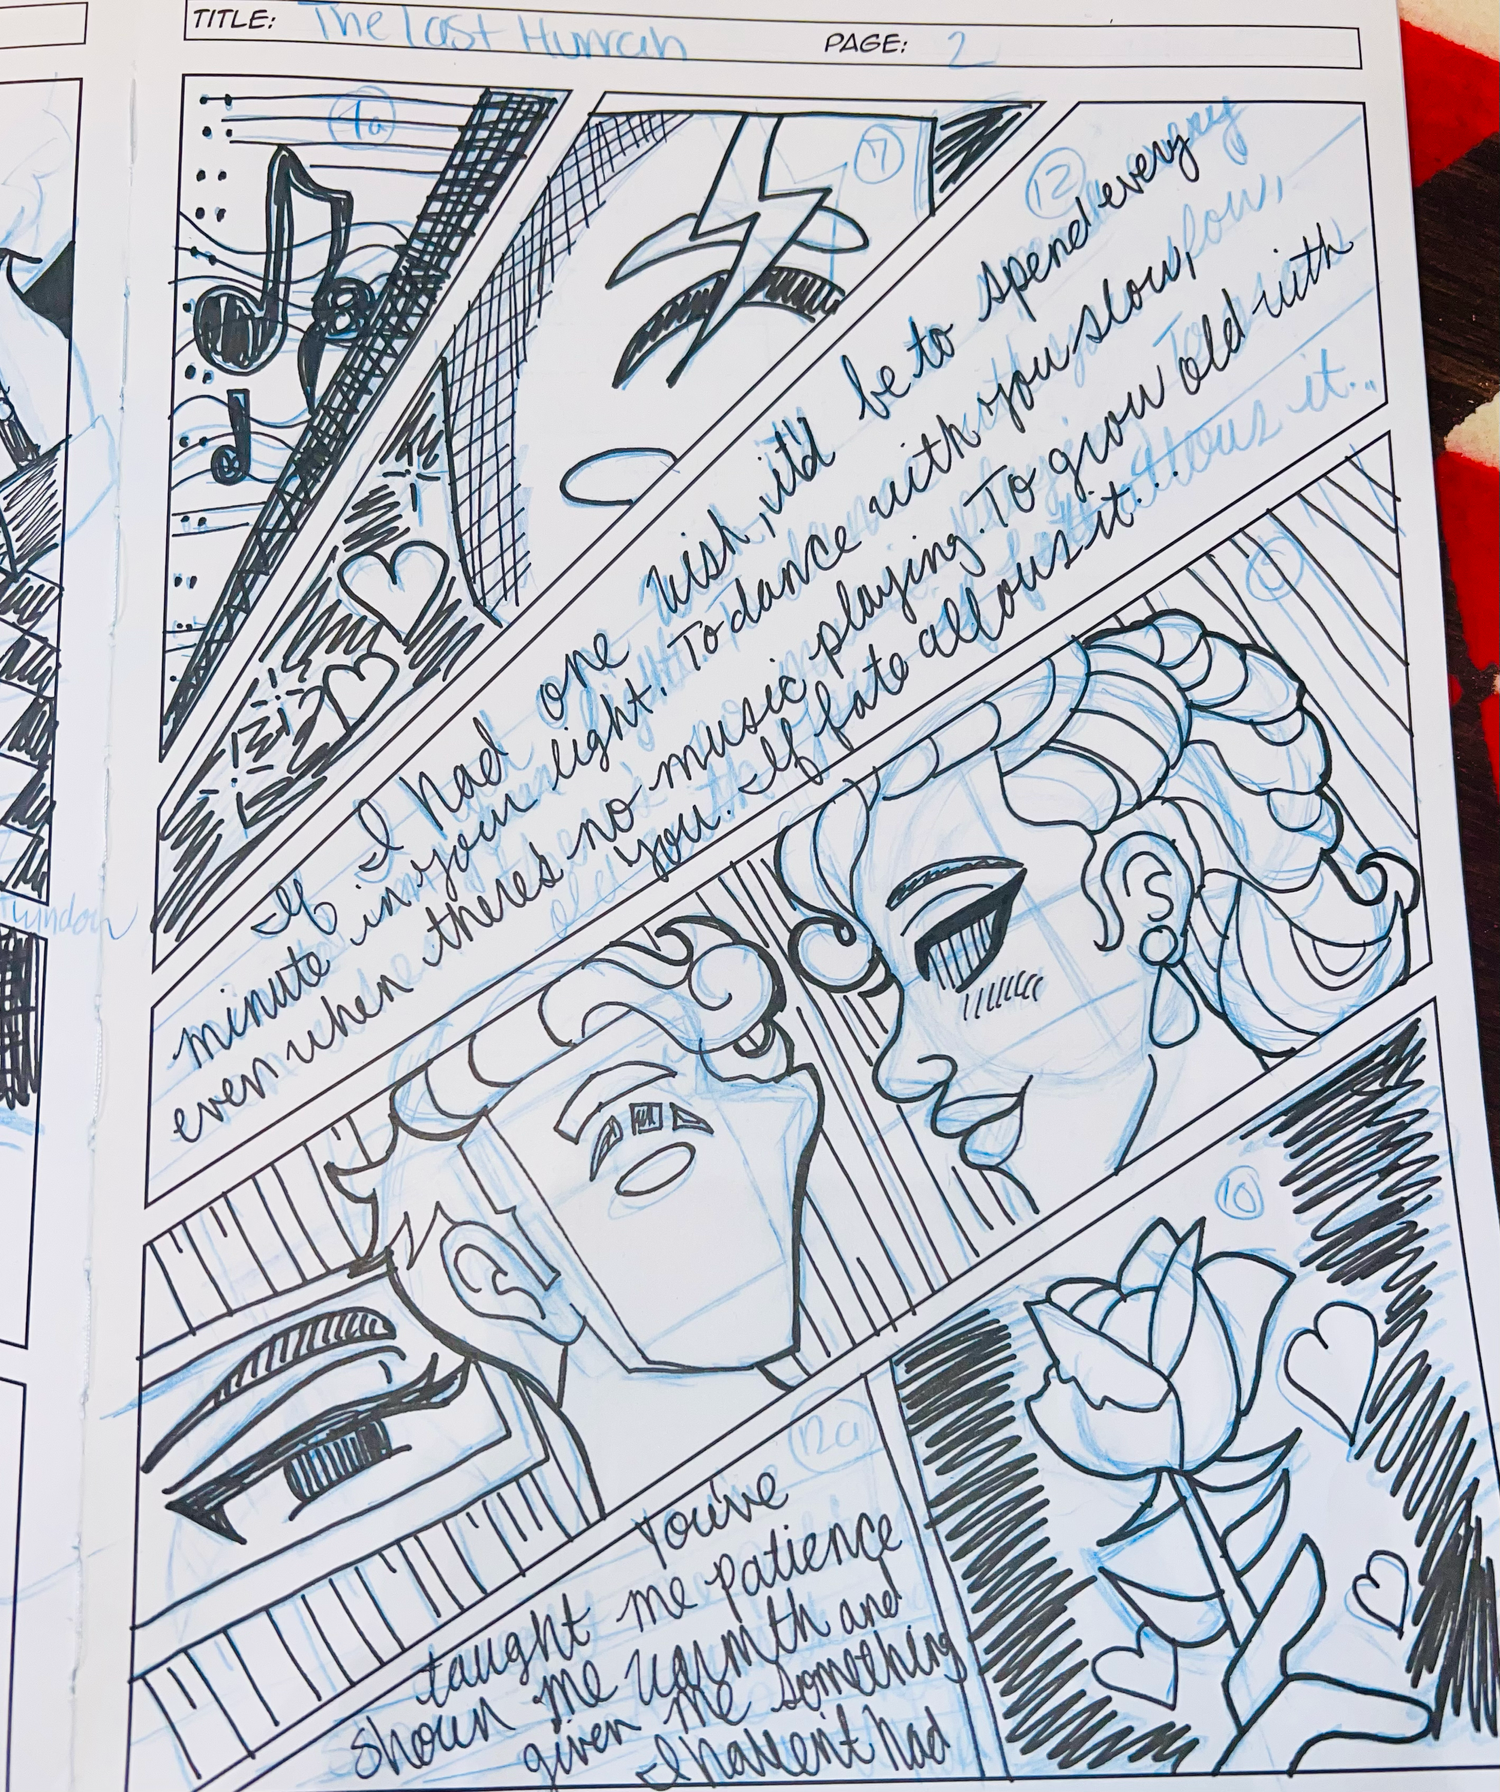 TITLE: The Last Human
PAGE: 2
7a
7
12
If I had one wish, it'd be to spend every
minute in your light. To dance with you slow,
even when there's no music playing. To grow old with
you. If fate allows it...
window
10
12a
You've
taught me patience
shown me warmth and
given me something
I haven't had